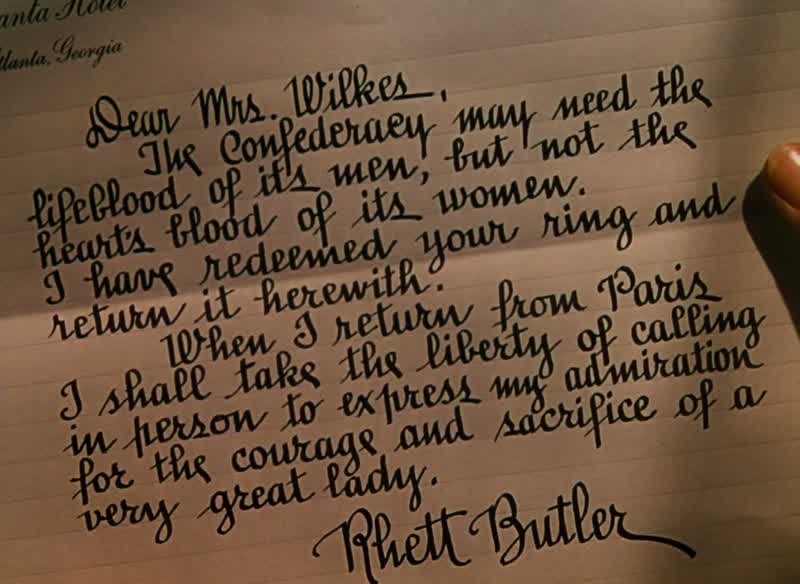 anta Hotel
tlanta, Georgia
Dear Mrs. Wilkes,
The Confederacy may need the
lifeblood of its men, but not the
heart's blood of its women.
I have redeemed your ring and
return it herewith.
When I return from Paris
I shall take the liberty of calling
in person to express my admiration
for the courage and sacrifice of a
very great lady.
Rhett Butler